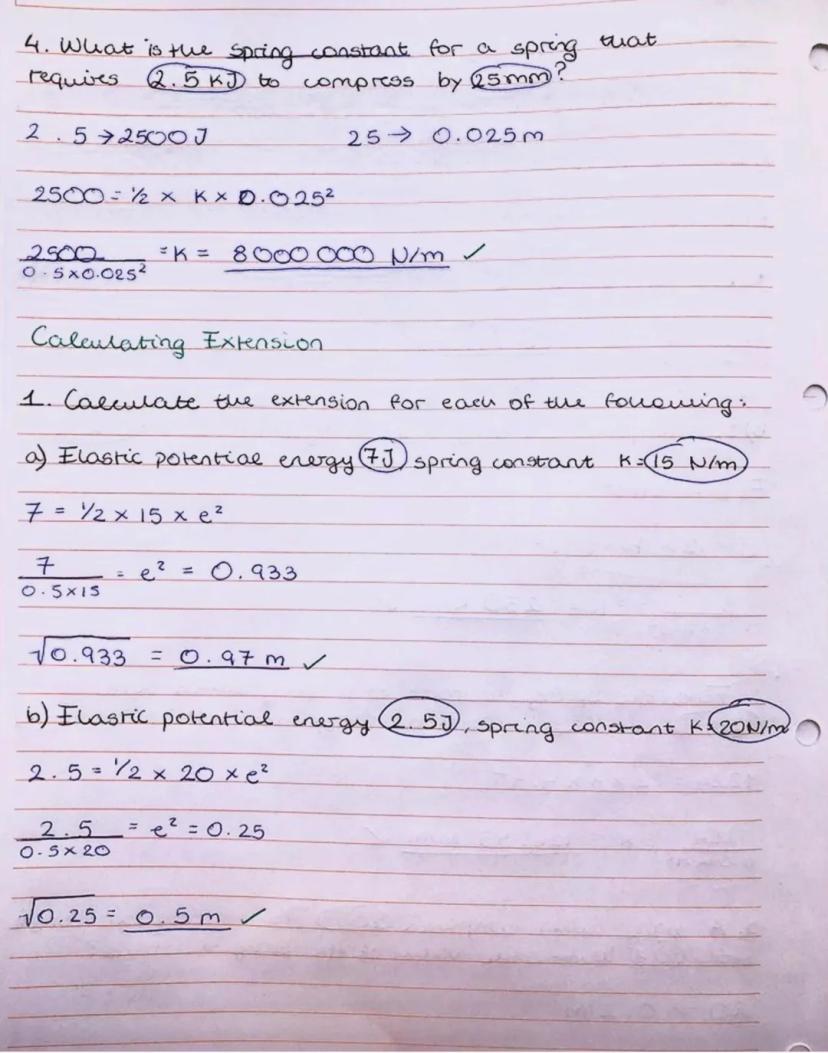 4. What is the spring constant for a spring that
requires 2.5 KJ to compress by 25mm?
2.5→2500J 25→ 0.025m
2500 = ½ × K × 0.025²
2500 / 0.5×0.025² = K = 8000 000 N/m ✓
Calculating Extension
1. Calculate the extension for each of the following:
a) Elastic potential energy 7J spring constant K=15 N/m
7 = ½ × 15 × e²
7 / 0.5×15 = e² = 0.933
√0.933 = 0.97 m ✓
b) Elastic potential energy 2.5J, spring constant K=20N/m
2.5 = ½ × 20 × e²
2.5 / 0.5×20 = e² = 0.25
√0.25 = 0.5 m ✓